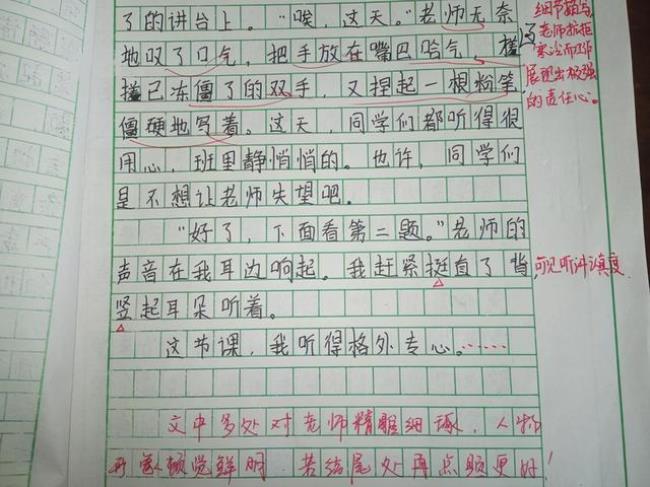 了的讲台上。“唉，这天。”老师无奈
地叹了口气，把手放在嘴巴哈气，搓
搓已冻僵了的双手，又捏起一根粉笔
僵硬地写着。这天，同学们都听得很
用心，班里静悄悄的。也许，同学们
是不想让老师失望吧。
“好了，下面看第二题。”老师的
声音在我耳边响起。我赶紧挺直了背，
竖起耳朵听着。
这节课，我听得格外专心。……
细节描写
老师抗拒
寒冷而工作
展现出极强
的责任心。
可见听讲认真度
文中多处对老师精雕细琢，人物
顿觉鲜明 若结尾处再点题更好！